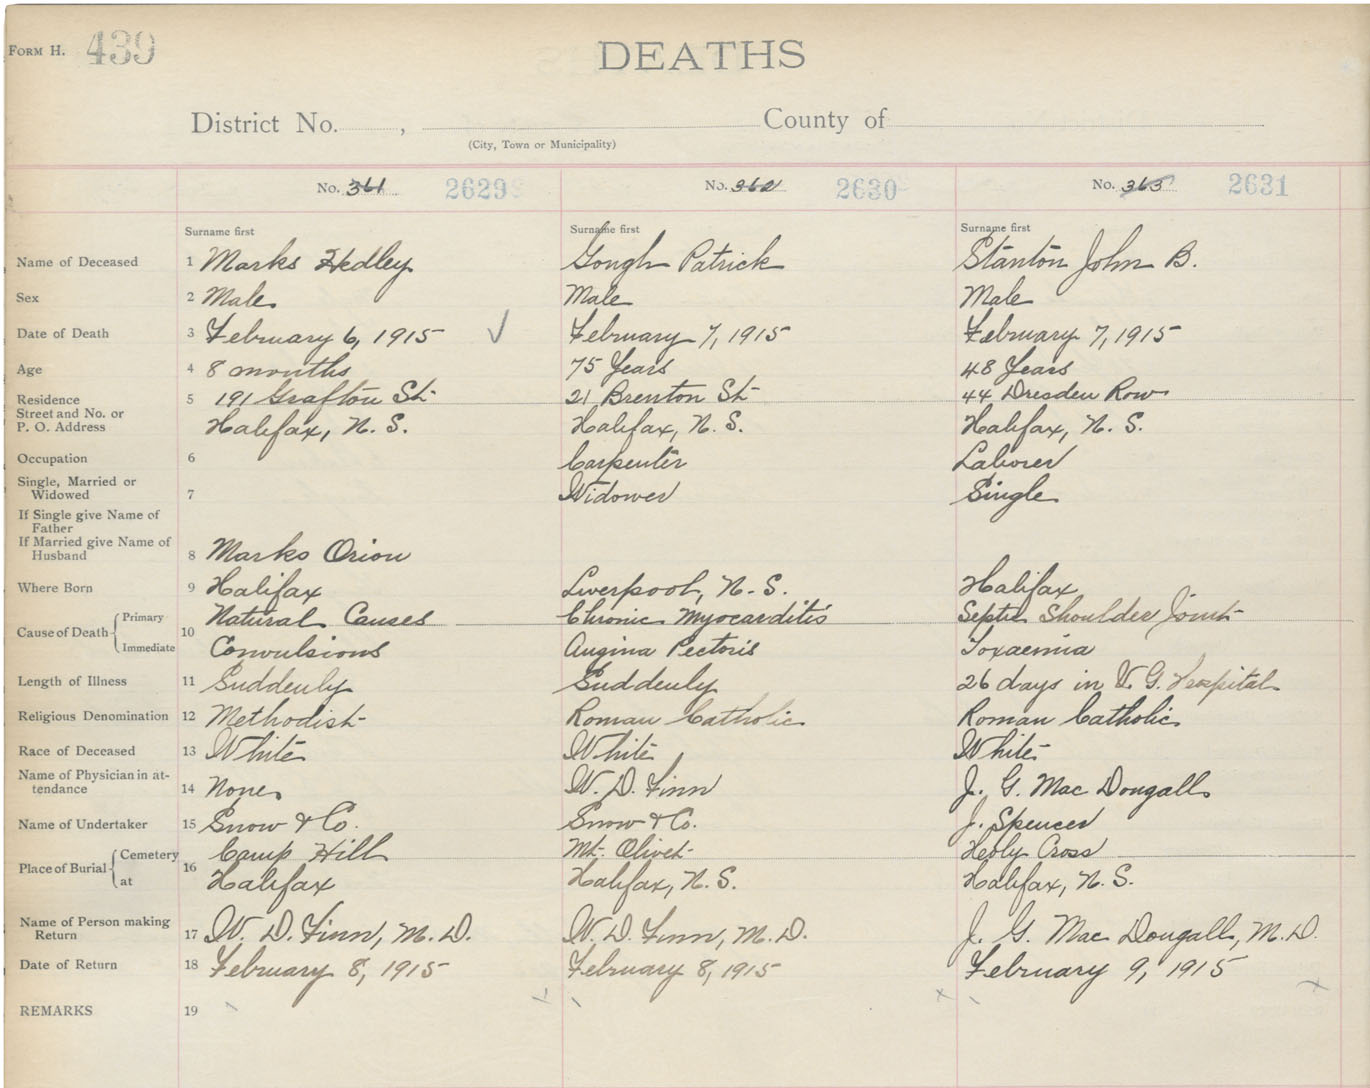 FORM H. 439
DEATHS
District No. , County of
(City, Town or Municipality)
No. 361 2629 No. 362 2630 No. 363 2631
Surname first Surname first Surname first
Name of Deceased 1 Marks Hedley Gough Patrick Stanton John B.
Sex 2 Male Male Male
Date of Death 3 February 6, 1915 ✓ February 7, 1915 February 7, 1915
Age 4 8 months 75 Years 48 Years
Residence 5 191 Grafton St 21 Brenton St 44 Dresden Row
Street and No. or
P. O. Address Halifax, N. S. Halifax, N. S. Halifax, N. S.
Occupation 6 Carpenter Laborer
Single, Married or
Widowed 7 Widower Single
If Single give Name of
Father
If Married give Name of
Husband 8 Marks Orion
Where Born 9 Halifax Liverpool, N. S. Halifax
Cause of Death Primary 10 Natural Causes Chronic Myocarditis Septic Shoulder Joint
Immediate Convulsions Angina Pectoris Toxaemia
Length of Illness 11 Suddenly Suddenly 26 days in V. G. Hospital
Religious Denomination 12 Methodist Roman Catholic Roman Catholic
Race of Deceased 13 White White White
Name of Physician in at-
tendance 14 None W. D. Finn J. G. Mac Dougall
Name of Undertaker 15 Snow & Co. Snow & Co. J. Spencer
Place of Burial Cemetery 16 Camp Hill Mt. Olivet Holy Cross
at Halifax Halifax, N. S. Halifax, N. S.
Name of Person making
Return 17 W. D. Finn, M. D. W. D. Finn, M. D. J. G. Mac Dougall, M. D.
Date of Return 18 February 8, 1915 February 8, 1915 February 9, 1915
REMARKS 19